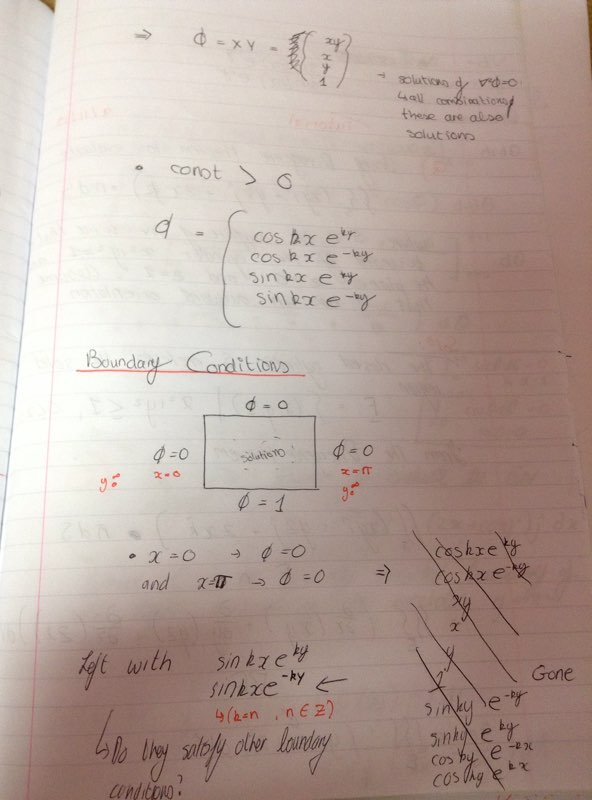 ⇒ ϕ = XY = { xy
x
y
1 }
→ solutions of ∇²ϕ=0
↳ all combinations of
these are also
solutions
• const > 0
ϕ = { cos kx e^ky
cos kx e^-ky
sin kx e^ky
sin kx e^-ky
Boundary Conditions
ϕ = 0
ϕ=0
x=0
solutions
ϕ = 0
x=π
ϕ = 1
• x=0 → ϕ=0
and x=π → ϕ=0 ⇒
cos kx e^ky
cos kx e^-ky
xy
x
y
1
Gone
sin ky e^-ky
sin ky e^ky
cos ky e^-kx
cos ky e^kx
Left with sin kx e^ky
sin kx e^-ky ←
↳ (k=n, n ∈ Z)
↳ Do they satisfy other boundary
conditions?